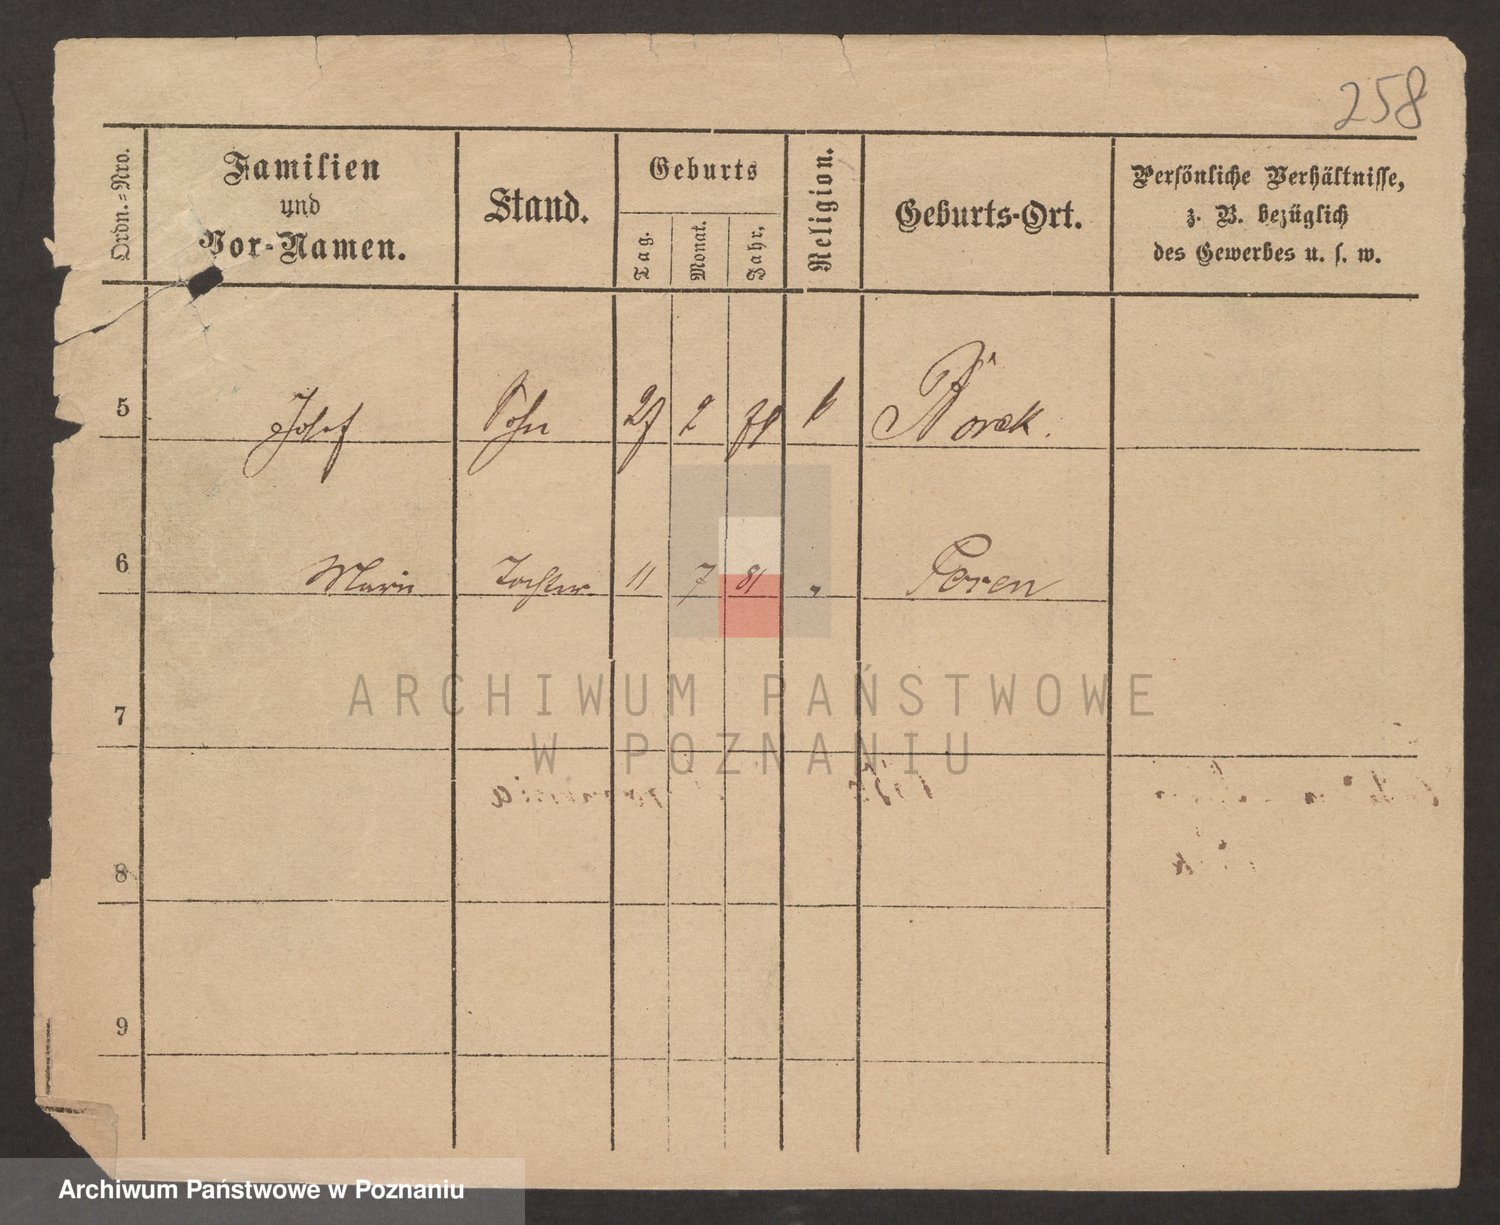 258
Ordn.-Nro.
Familien
und
Vor-Namen.
Stand.
Geburts
Tag.
Monat.
Jahr.
Religion.
Geburts-Ort.
Persönliche Verhältnisse,
z. B. bezüglich
des Gewerbes u. s. w.
5 Josef Sohn 27 2 k Borek.
6 Marie Tochter 11 7 81 " Posen
ARCHIWUM PAŃSTWOWE
W POZNANIU
7
8
9
Archiwum Państwowe w Poznaniu